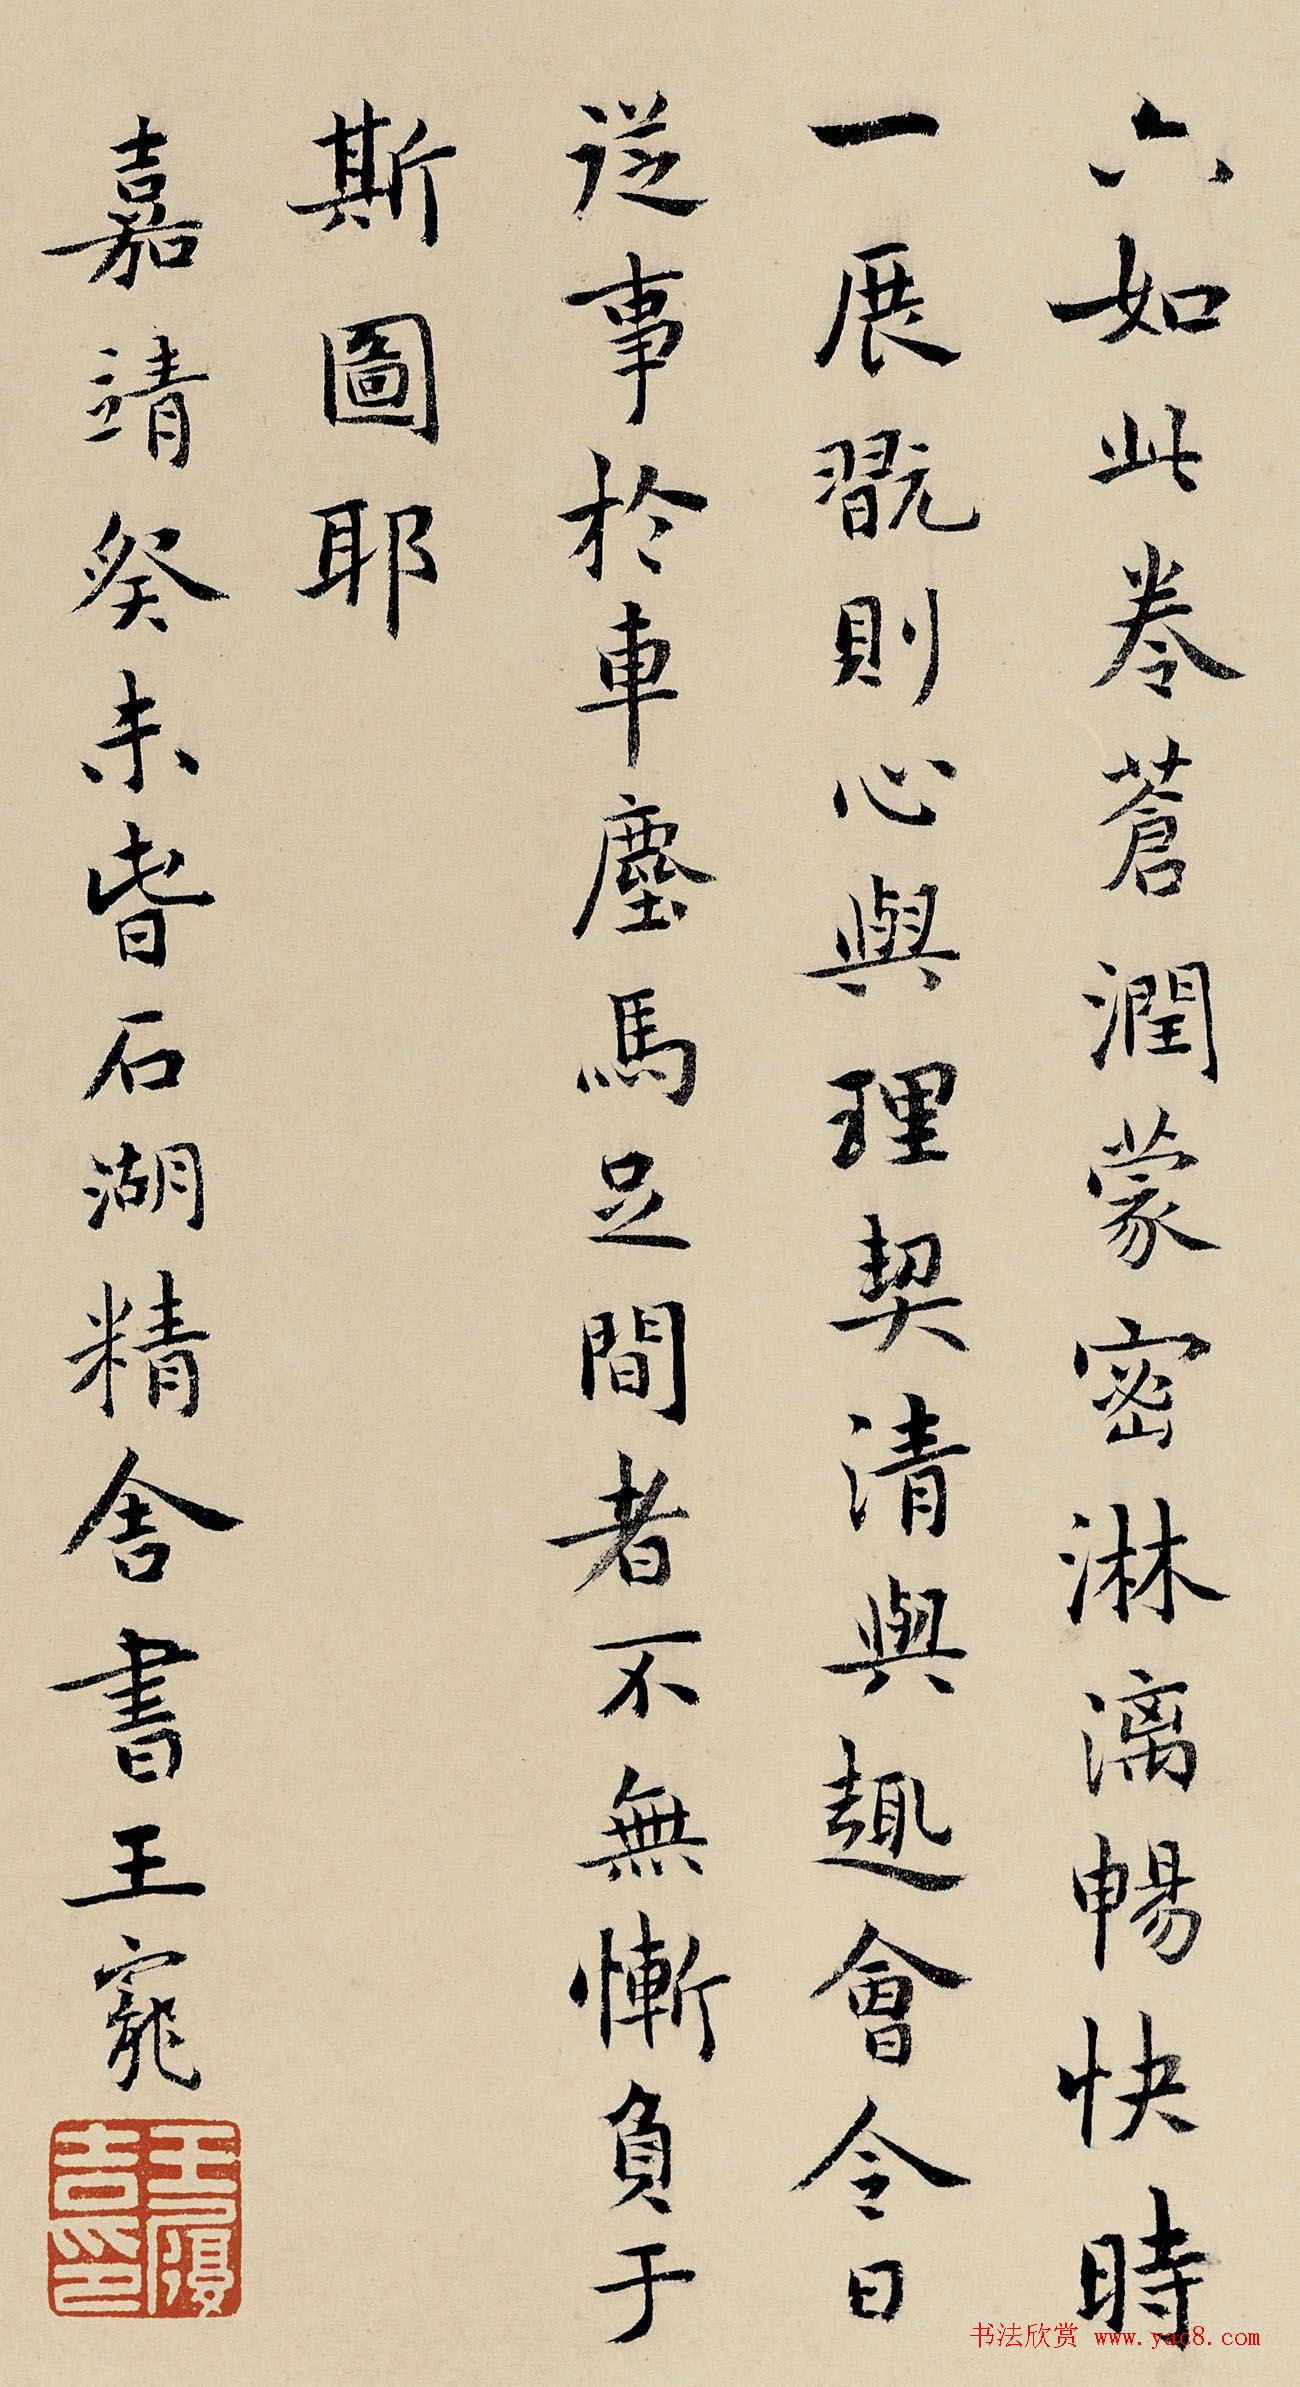 六如此卷蒼潤蒙密淋漓暢快時
一展翫則心與理契清與趣會令日
從事於車塵馬足間者不無慚負于
斯圖耶
嘉靖癸未皆石湖精舍書王寵
王履吉印
书法欣赏 www.yac8.com